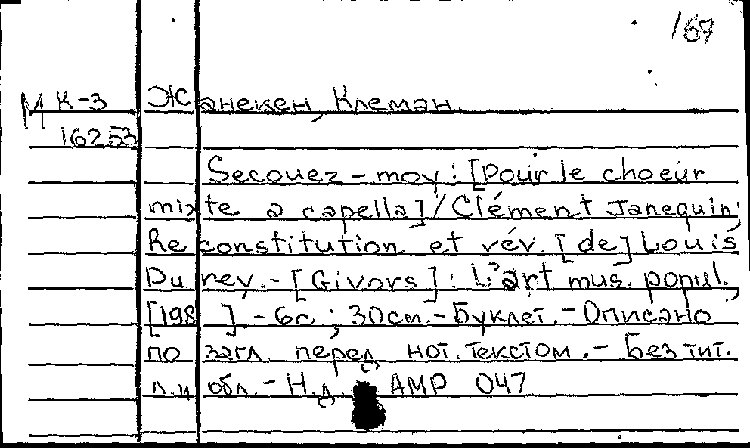 167
М К-3 Жанекен, Клеман
16253
Secouez-moy : [Pour le choeur
mixte a capella] / Clément Janequin;
Reconstitution et rév. [de] Louis
Durey. - [Givors] : L'art mus. popul.,
[198 ] - 6с ; 30cm. - Буклет. - Описано
по загл. перед нот. текстом. - Без тит.
л. и обл. - Н.д. АМР 047